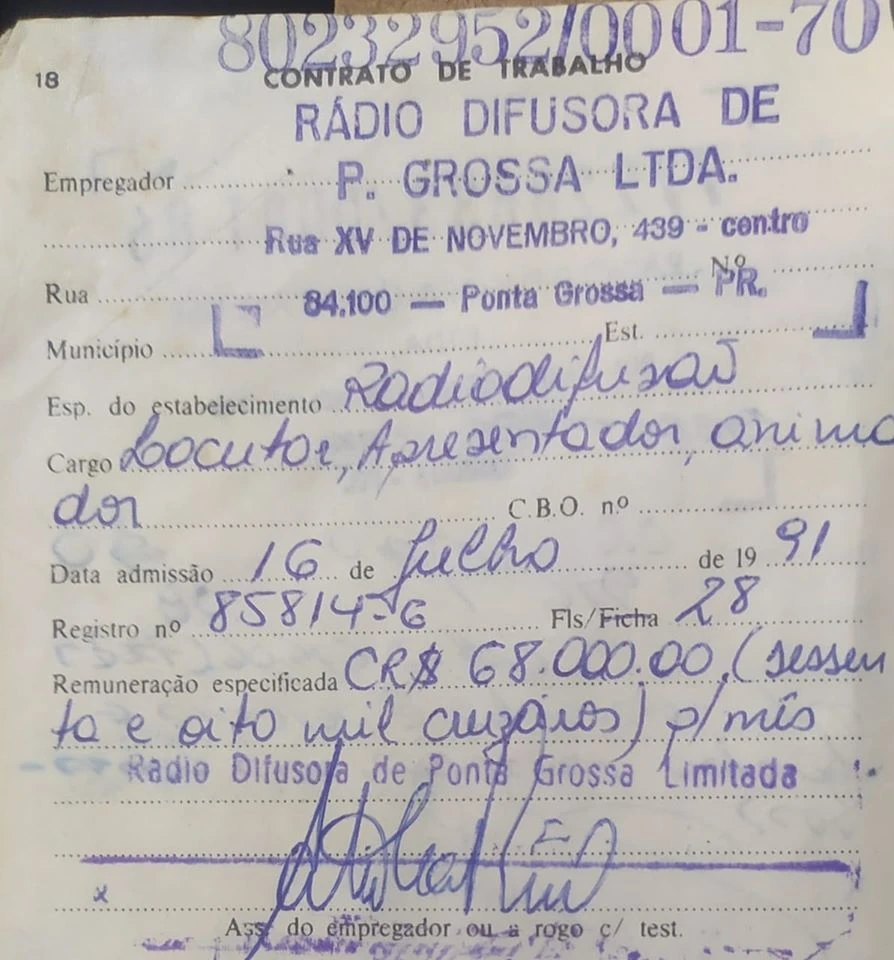 80232952/0001-70
18 CONTRATO DE TRABALHO
RÁDIO DIFUSORA DE
Empregador P. GROSSA LTDA.
Rua XV DE NOVEMBRO, 439 - centro
Rua 84.100 — Ponta Grossa — PR. Nº
Município Est.
Esp. do estabelecimento Radiodifusão
Cargo Locutor, Apresentador, anima
dor C.B.O. nº
Data admissão 16 de Julho de 19 91
Registro nº 85814-6 Fls/Ficha 28
Remuneração especificada CR$ 68.000.00, (sessen
ta e oito mil cruzeiros) p/mês
Rádio Difusora de Ponta Grossa Limitada
x
Ass. do empregador ou a rogo c/ test.